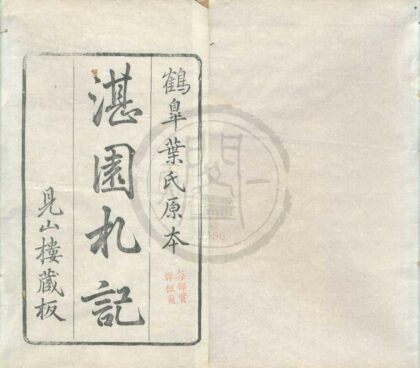 鶴皐葉氏原本
湛園札記
見山樓藏板